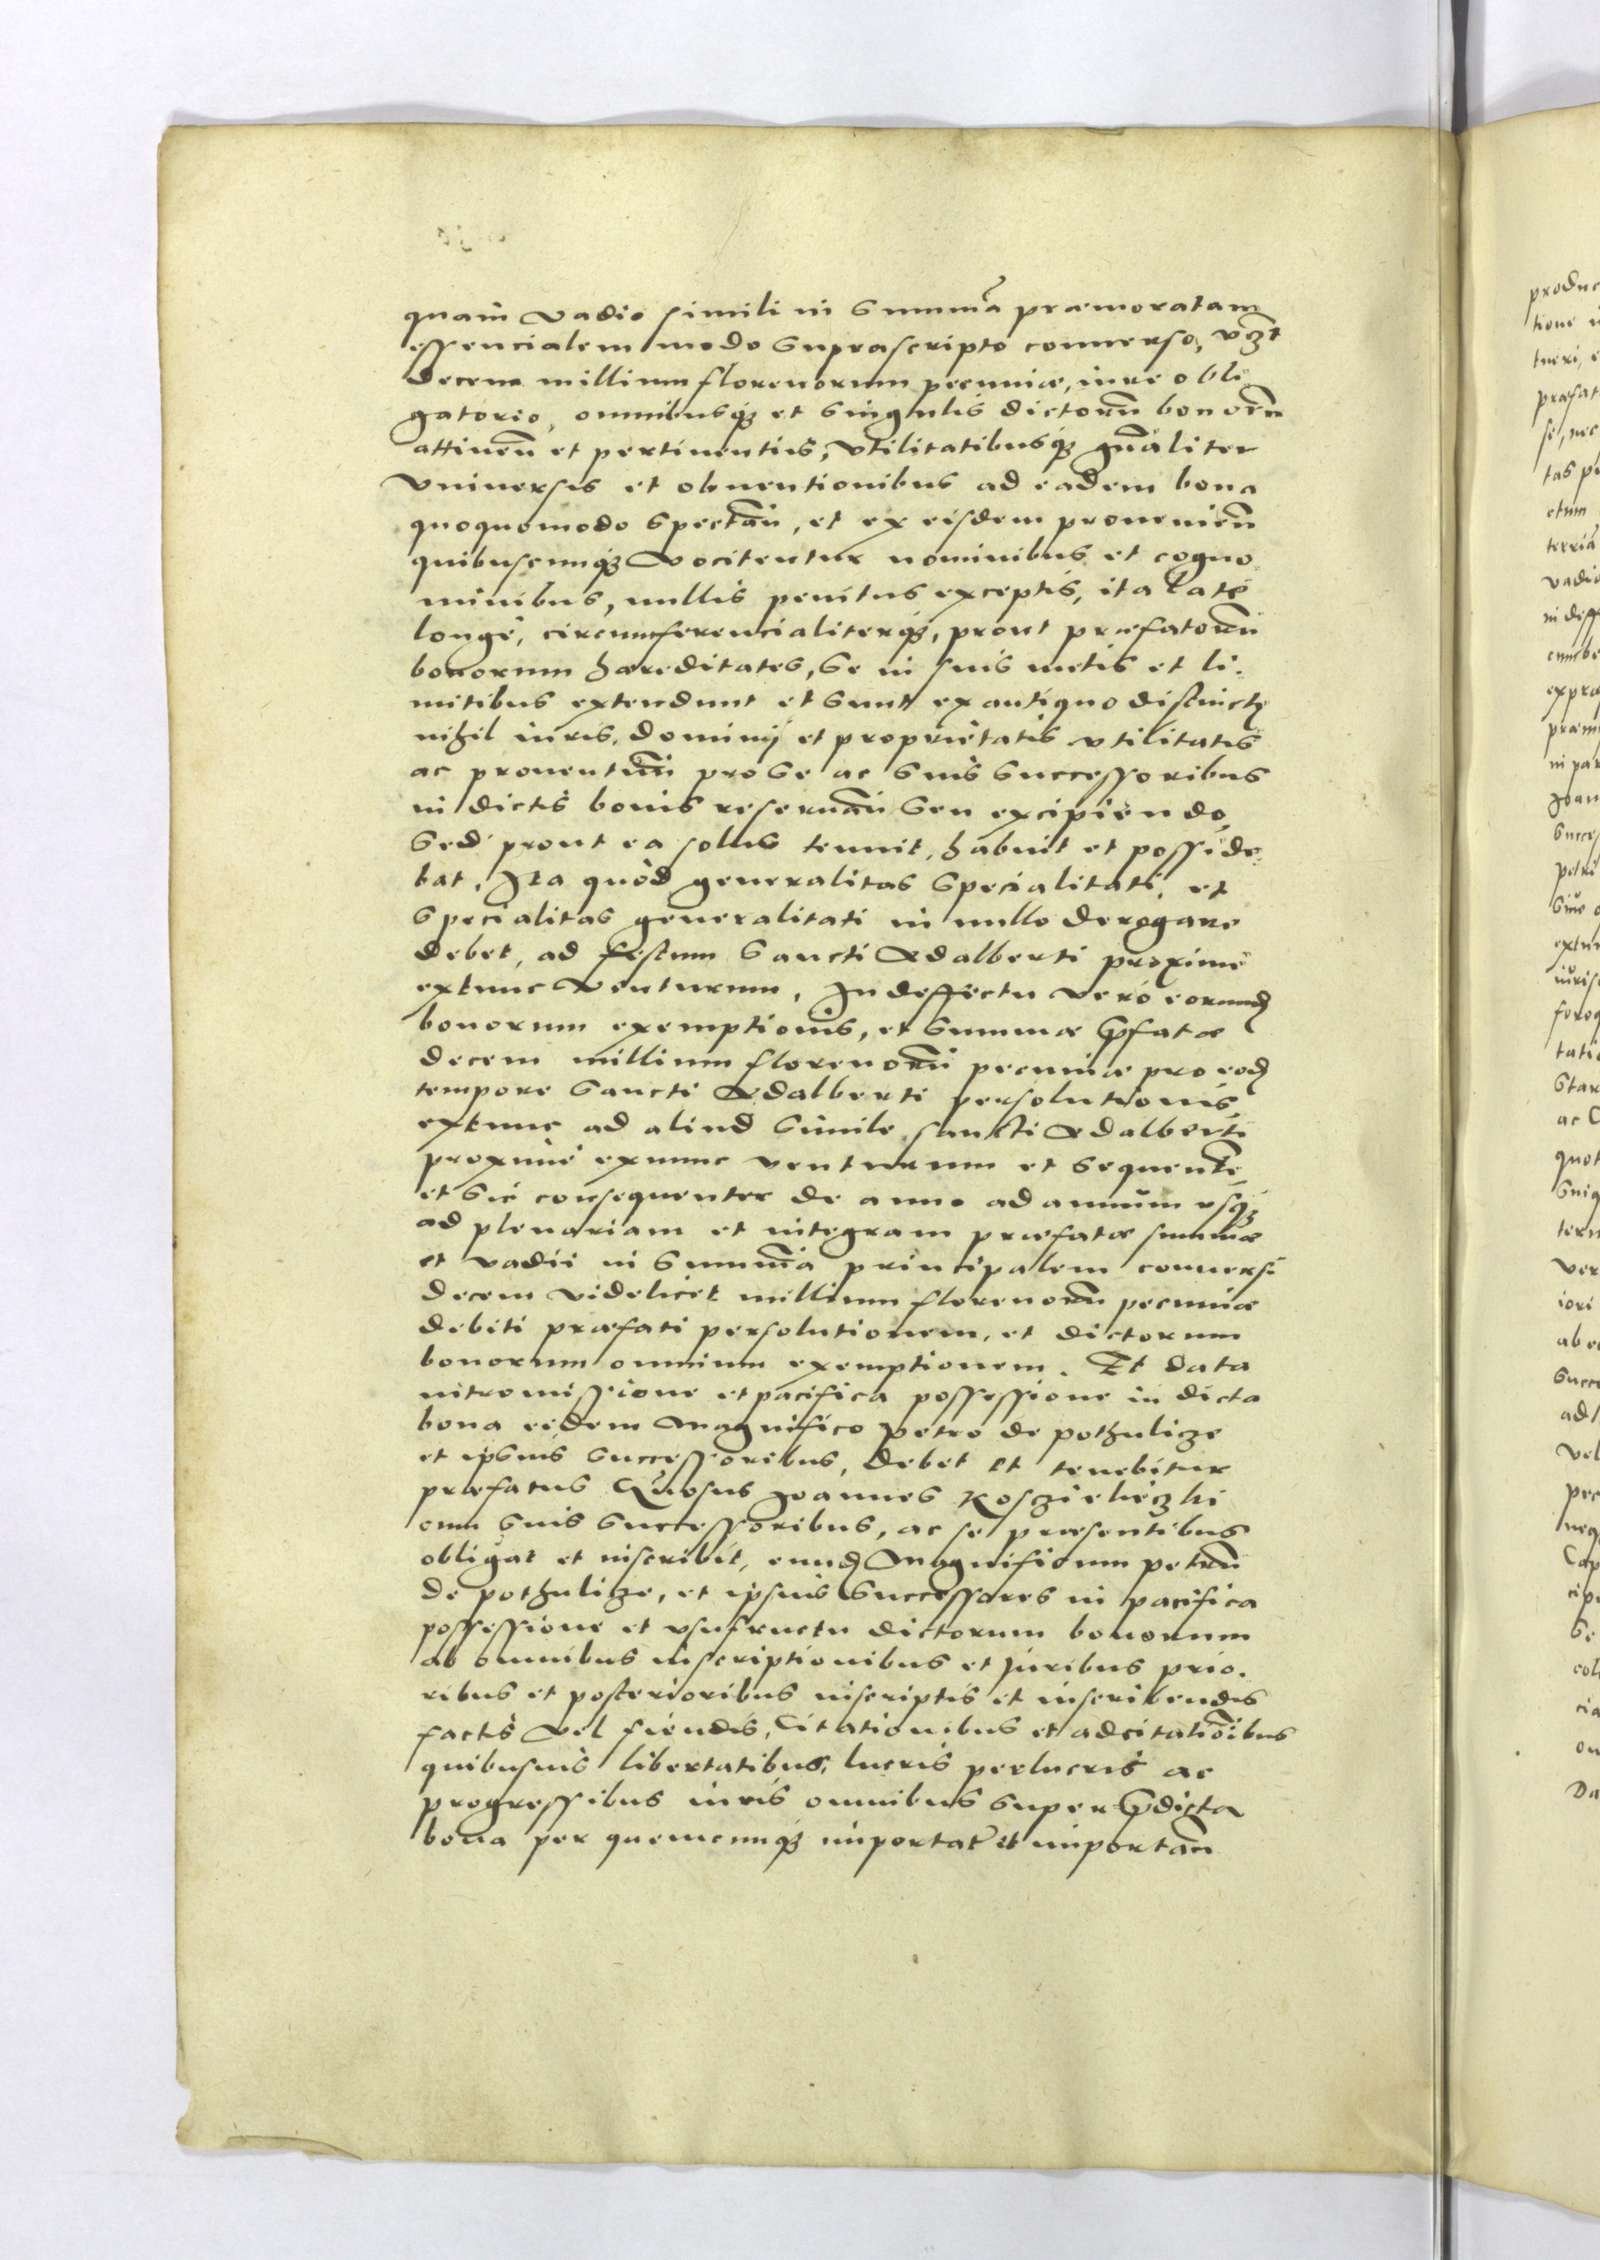 quam vadio simili in summã præmoratam
essencialem modo suprascripto conuerso, vꝫt
decem millium florenorum pecuniæ, iure obli
gatorio, omnibusqꝫ et singulis dictorũ bonorũ
attineñ et pertinentijs, vtilitatibusqꝫ gñaliter
vniuersis et obuentionibus ad eadem bona
quoquomodo spectañ, et ex eisdem prouenieñ
quibuscunqꝫ vocitentur nominibus et cogno
minibus, nullis penitus exceptis, ita latè
longè, circumferencialiterqꝫ, prout præfatorũ
bonorum hæreditates, se in suis metis et li.
mitibus extendunt et sunt ex antiquo distinctę
nihil iuris, dominij et proprietatis vtilitatis
ac prouentuũ pro se ac suis successoribus
in dictis bonis reseruañ seu excipiendo,
sed prout ea solus tenuit, habuit et posside.
bat, Ita quòd generalitas specialitati, et
specialitas generalitati in nullo derogare
debet, ad festum Sancti Adalberti proximè
extunc venturum, In deffectu verò eorundꝫ
bonorum exemptionis, et summæ p̃fatæ
decem millium florenorũ pecuniæ pro eodꝫ
tempore Sancti Adalberti persolutionis,
extunc ad aliud simile sancti Adalberti
proximè exnunc venturum et sequentẽ,
et sic consequenter de anno ad annum vsqꝫ
ad plenariam et integram præfatæ summæ
et vadii in summã principalem conuersi
decem videlicet millium florenorũ pecuniæ
debiti præfati persolutionem, et dictorum
bonorum omnium exemptionem. Et data
intromissione et pacifica possessione in dicta
bona eidem Magnifico Petro de pothulicze
et ipsius successoribus, debet et tenebitur
præfatus Gn̄osus Joannes Kosczielieczki
cum suis successoribus, ac se præsentibus
obligat et inscribit, eundꝫ Magnificum petrũ
de pothulicze, et ipsius successores in pacifica
possessione et vsufructu dictorum bonorum
ab omnibus inscriptionibus et juribus prio.
ribus et posterioribus inscriptis et inscribendis
factis vel fiendis, Citationibus et adcitatiõibus
quibusuis libertatibus, lucris perlucris ac
progressibus iuris omnibus super p̃dicta
bona per quemcunqꝫ importat̃ et importañ